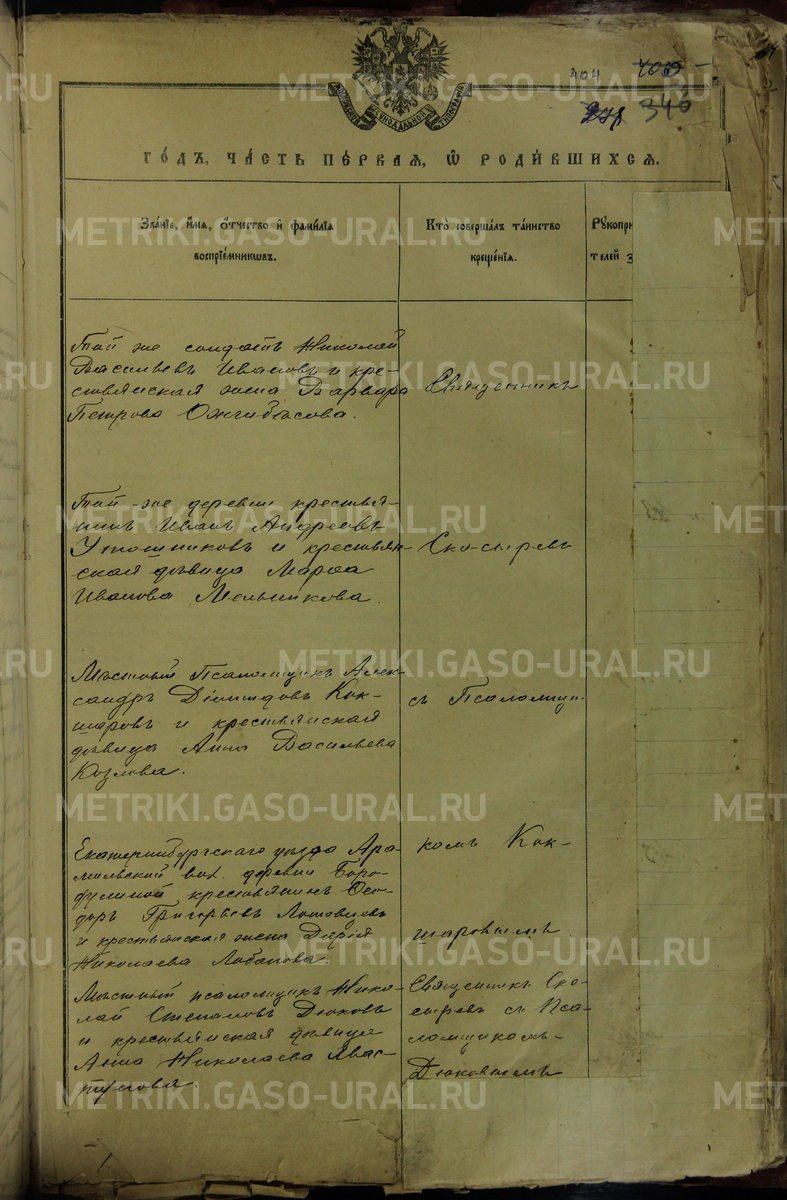 404 400
346
ГОДЪ, ЧАСТЬ ПЕРВАЯ, Ѡ РОДИВШИХСЯ.
Званіе, имя, отчество и фамилія
воспріемниковъ.
Кто совершалъ таинство
крещенія.
Рукопри
телей з
Той же солдатъ Николай
Васильевъ Ивановъ и кре-
стьянская жена Варвара
Петрова Ожгибѣсова.
Священникъ
Той-же деревни крестья-
нинъ Иванъ Андреевъ
Утошниковъ и крестьян-
ская дѣвица Марѳа
Иванова Мельникова.
Ско-сыревъ
Мѣстный Псаломщикъ Алек-
сандръ Діомидовъ Кок-
шаровъ и крестьянская
дѣвица Анна Васильева
Козлова.
съ Псаломщи-
Екатеринбургскаго уѣзда Ара-
мильской вол. деревни Боро-
дулиной крестьянинъ Ѳео-
доръ Григорьевъ
и крестьянская жена Дарія
Николаева Лобанова.
комъ Кок-
шаровымъ.
Мѣстный псаломщикъ Нико-
лай Степановъ Дюковъ
и крестьянская дѣвица
Анна Николаева Хвас-
тунова.
Священникъ Ско-
сыревъ съ Пса-
ломщикомъ-
Дюковымъ
METRIKI.GASO-URAL.RU